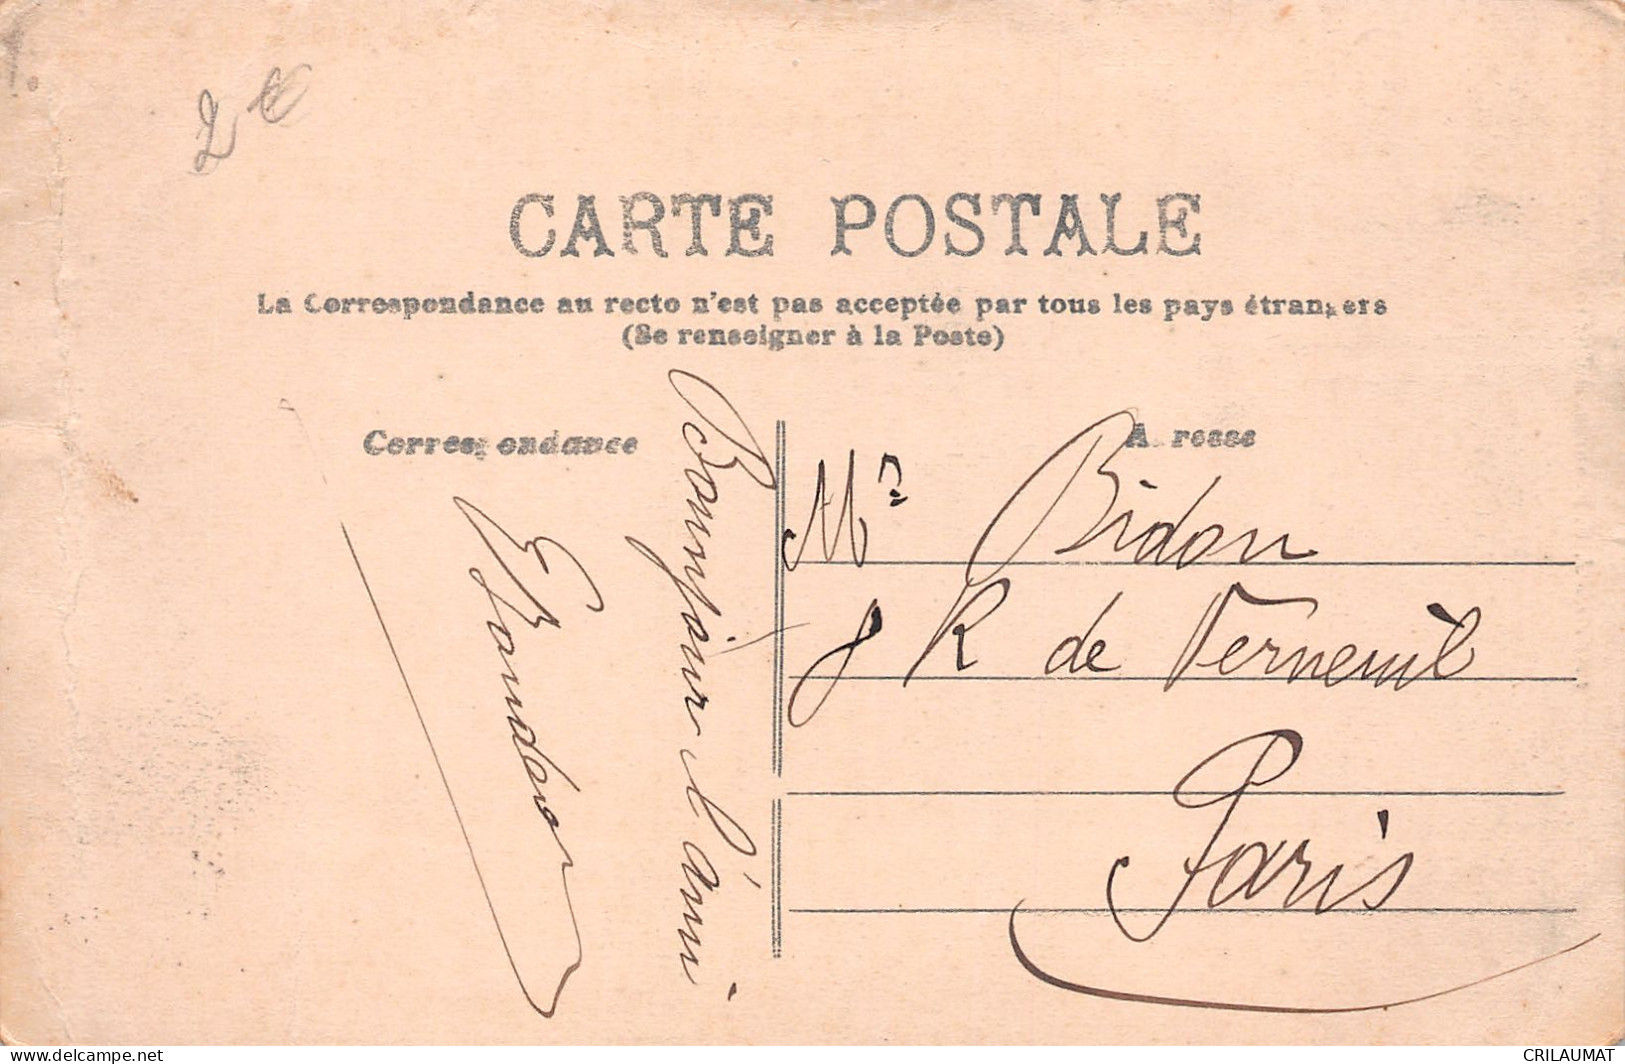 2 €
CARTE POSTALE
La Correspondance au recto n'est pas acceptée par tous les pays étrangers
(Se renseigner à la Poste)
Correspondance
Adresse
Bonnjour l'ami
Mr Bidon
8 R de Verneuil
Paris
delcampe.net
CRILAUMAT